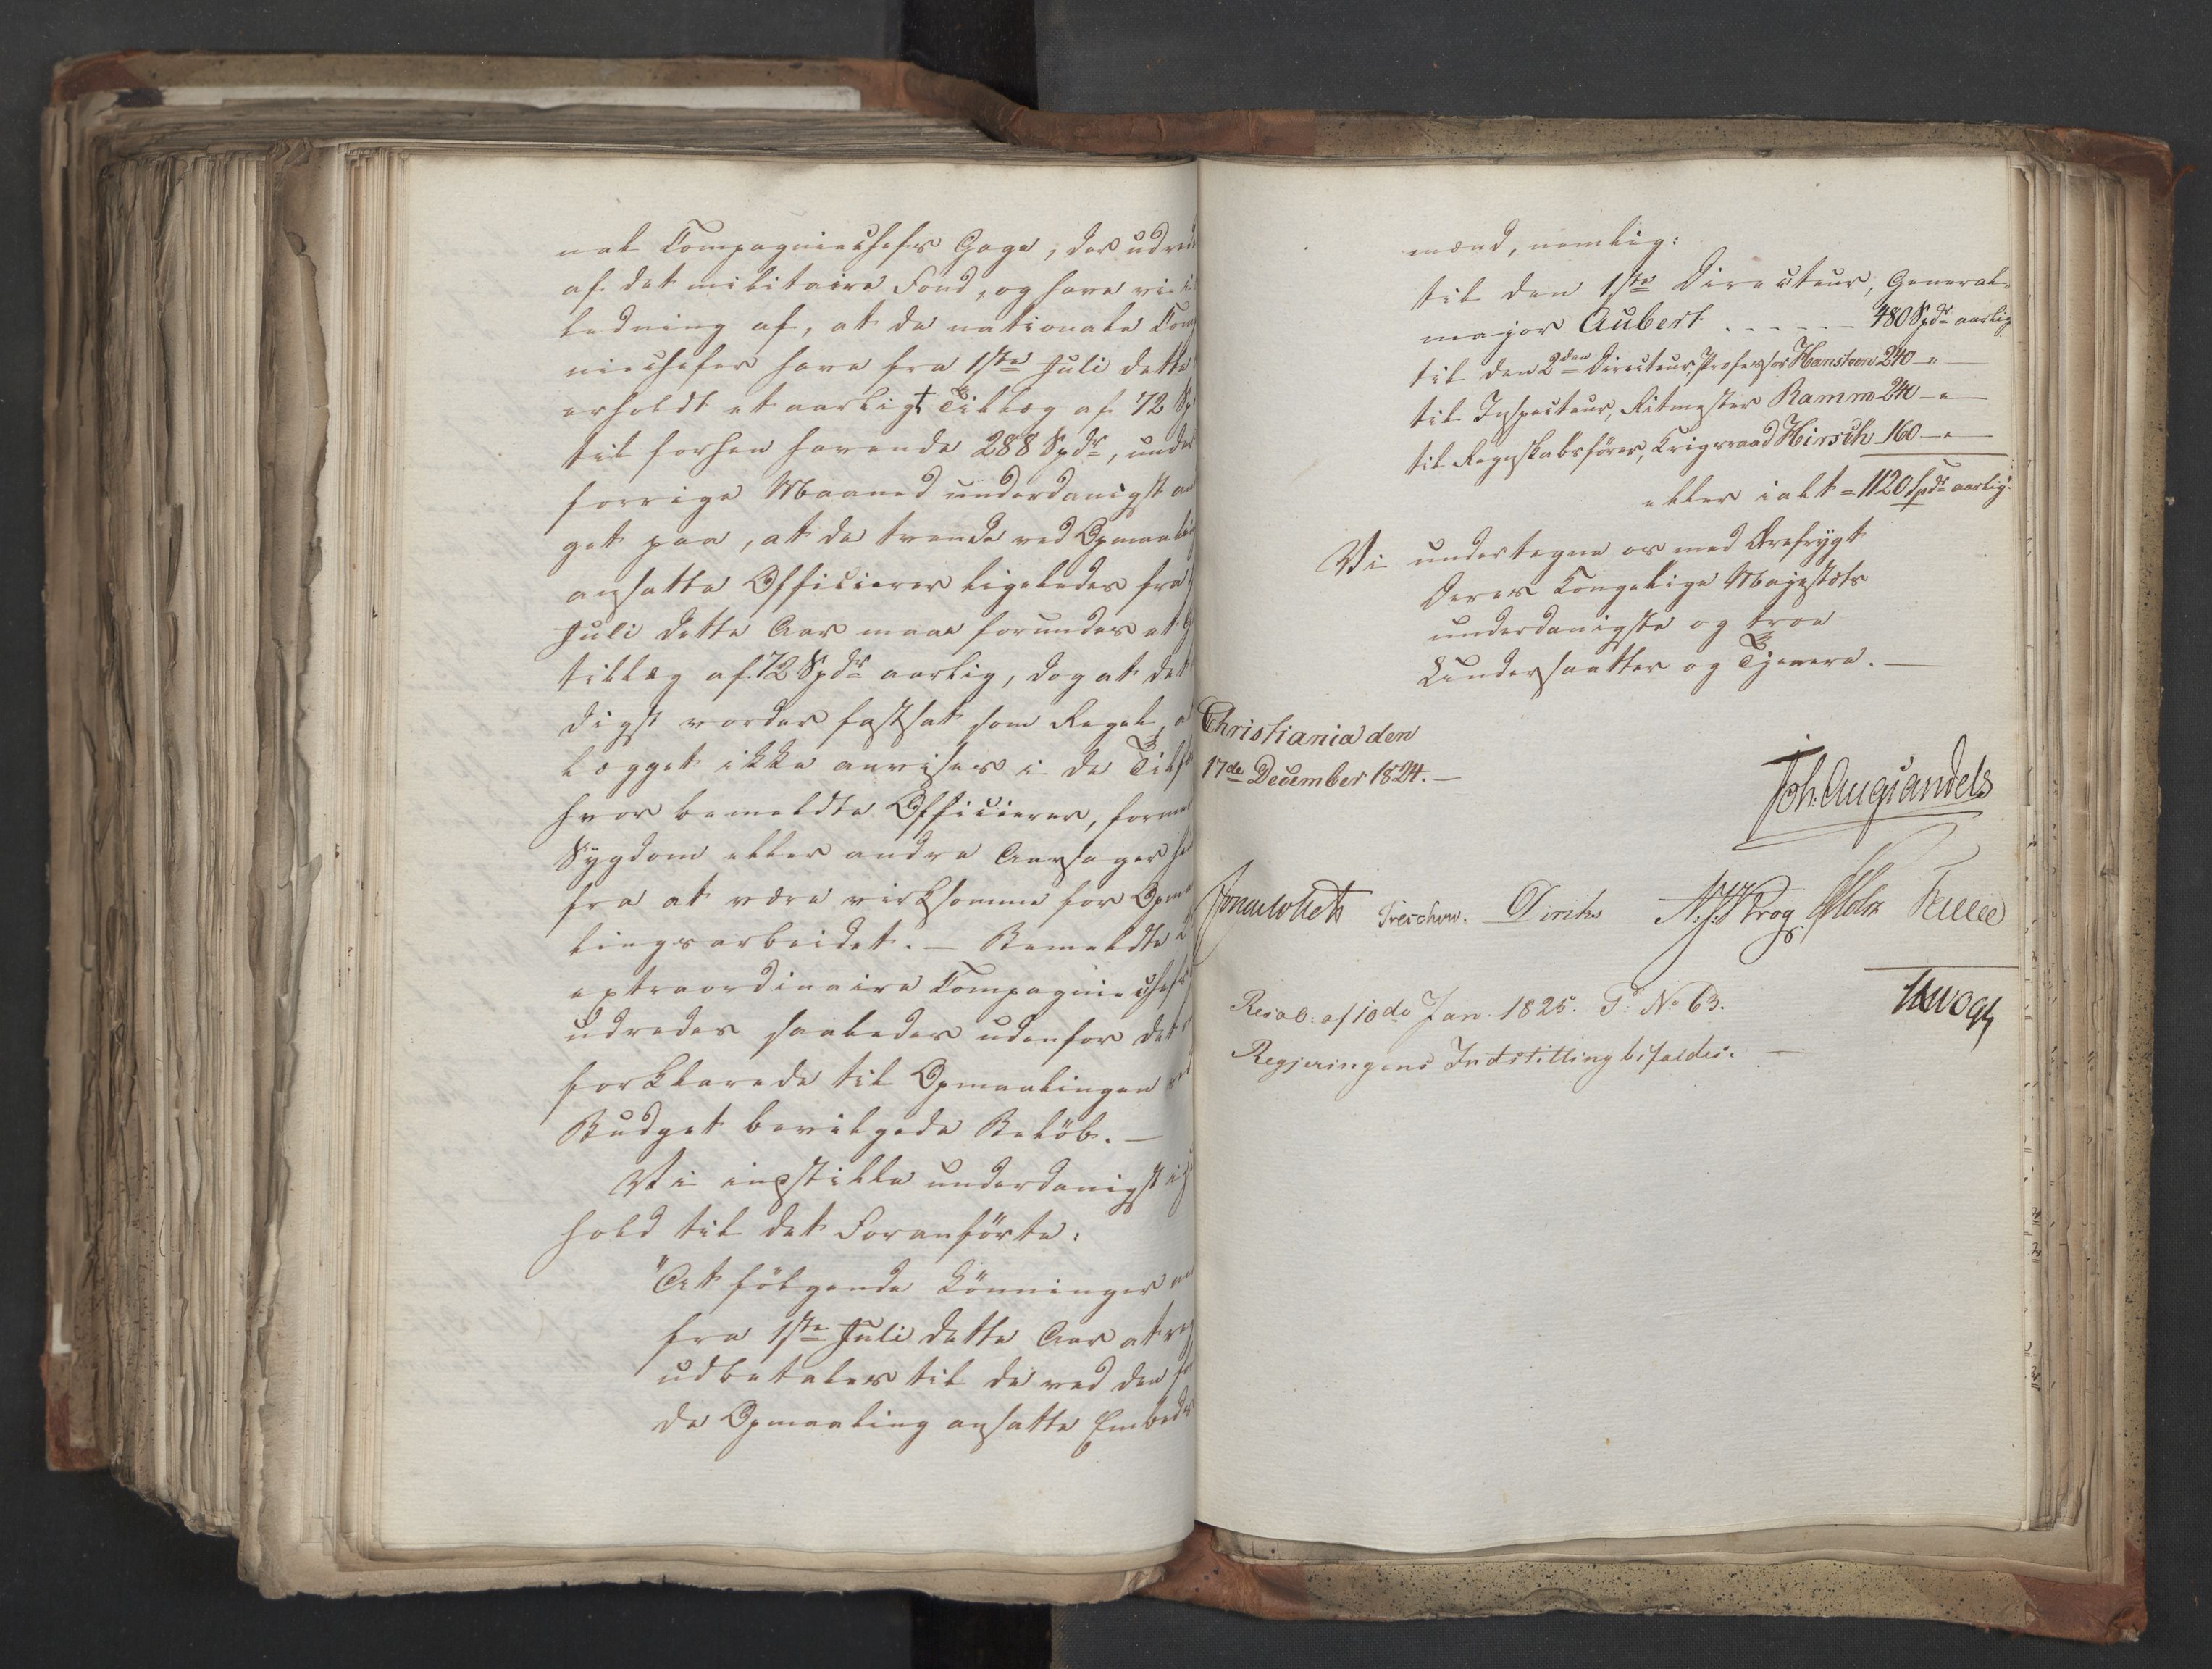 nal Compagniechefs Gage, der udrede
af det militaire Fond, og have vi i
ledning af, at de nationale Comp
niechefer have fra 1ste Juli dette
erholdt et aarligt Tillæg af 72 Sp
til forhen havende 288 Spdr, under
forrige Maaned underdanigst an
get paa, at de tvende ved Opmaaling
ansatte Officierer ligeledes fra 1
Juli dette Aar maae forundes et G
tillæg af 72 Spdr aarlig, dog at det
digst vorder fastsat som Regel, a
lægget ikke anvises i de Tilfæ
hvor bemeldte Officierer, forme
Sygdom eller andre Aarsager hi
fra at være virksomme for Opma
lingsarbeidet. — Bemeldte 2
extraordinaire Compagniechefs
udredes saaledes udenfor det
forklarede til Opmaalingen ved
Budget bevilgede Beløb. —
Vi indstille underdanigst i
hold til det Foranførte:
"At følgende Lønninger
fra 1ste Juli dette Aar at reg
udbetales til de ved den
de Opmaaling ansatte Embeds
mænd, nemlig:
til den 1ste Directeur, General-
major Aubert . . . . . . 480 Spdr aarlig
til den 2den Directeur, Professor Hansteen 240 — "
til Inspecteur, Ritmester Ramm 240 — "
til Regnskabsfører, Krigsraad Hirsch 160 — "
eller ialt = 1120 Spdr aarlig.
Vi undertegne os med Ærefrygt
Deres Kongelige Majestæts
underdanigste og troe
Undersaatter og Tjenere. —
Christiania den
17de December 1824. —
Joh. Aug. Sandels
Jonas Collett Treschow. Diriks N. J. Krog P. Motzfeldt
Resol: af 10de Jan. 1825. P: No 63.
Regjeringens Indstilling bifaldes. —